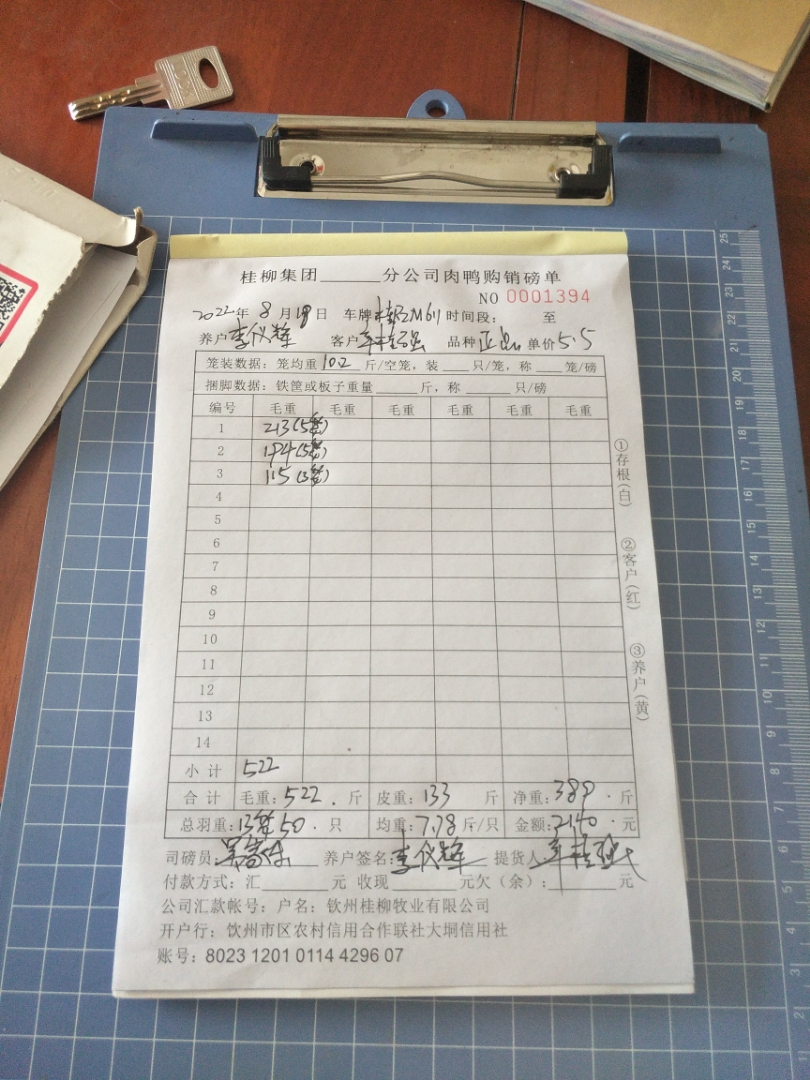 桂柳集团______分公司肉鸭购销磅单
NO 0001394
2022年 8 月 19 日 车牌 M611 时间段： 至
养户 李仪辉 客户 品种 正品 单价 5.5
笼装数据：笼均重 10.2 斤/空笼，装____只/笼，称____笼/磅
捆脚数据：铁筐或板子重量____斤，称____只/磅
编号 毛重 毛重 毛重 毛重 毛重 毛重
1 213(5笼)
2 194(5笼)
3 115(3笼)
4
5
6
7
8
9
10
11
12
13
14
小 计 522
合 计 毛重：522. 斤 皮重：133 斤 净重：389. 斤
总羽重：13笼50. 只 均重：7.78 斤/只 金额：2140. 元
司磅员 养户签名：李仪辉 提货人
付款方式：汇______元 收现______元欠（余）：______元
公司汇款帐号：户名：钦州桂柳牧业有限公司
开户行：钦州市区农村信用合作联社大垌信用社
账号：8023 1201 0114 4296 07
①存根（白）
②客户（红）
③养户（黄）
25
24
23
22
21
20
19
18
17
16
15
14
13
12
11
10
9
8
7
6
5
4
3
2
1